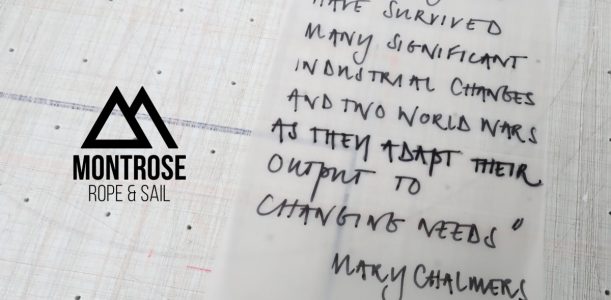 MONTROSE
ROPE & SAIL
HAVE SURVIVED
MANY SIGNIFICANT
INDUSTRIAL CHANGES
AND TWO WORLD WARS
AS THEY ADAPT THEIR
OUTPUT TO
CHANGING NEEDS"
MARY CHALMERS